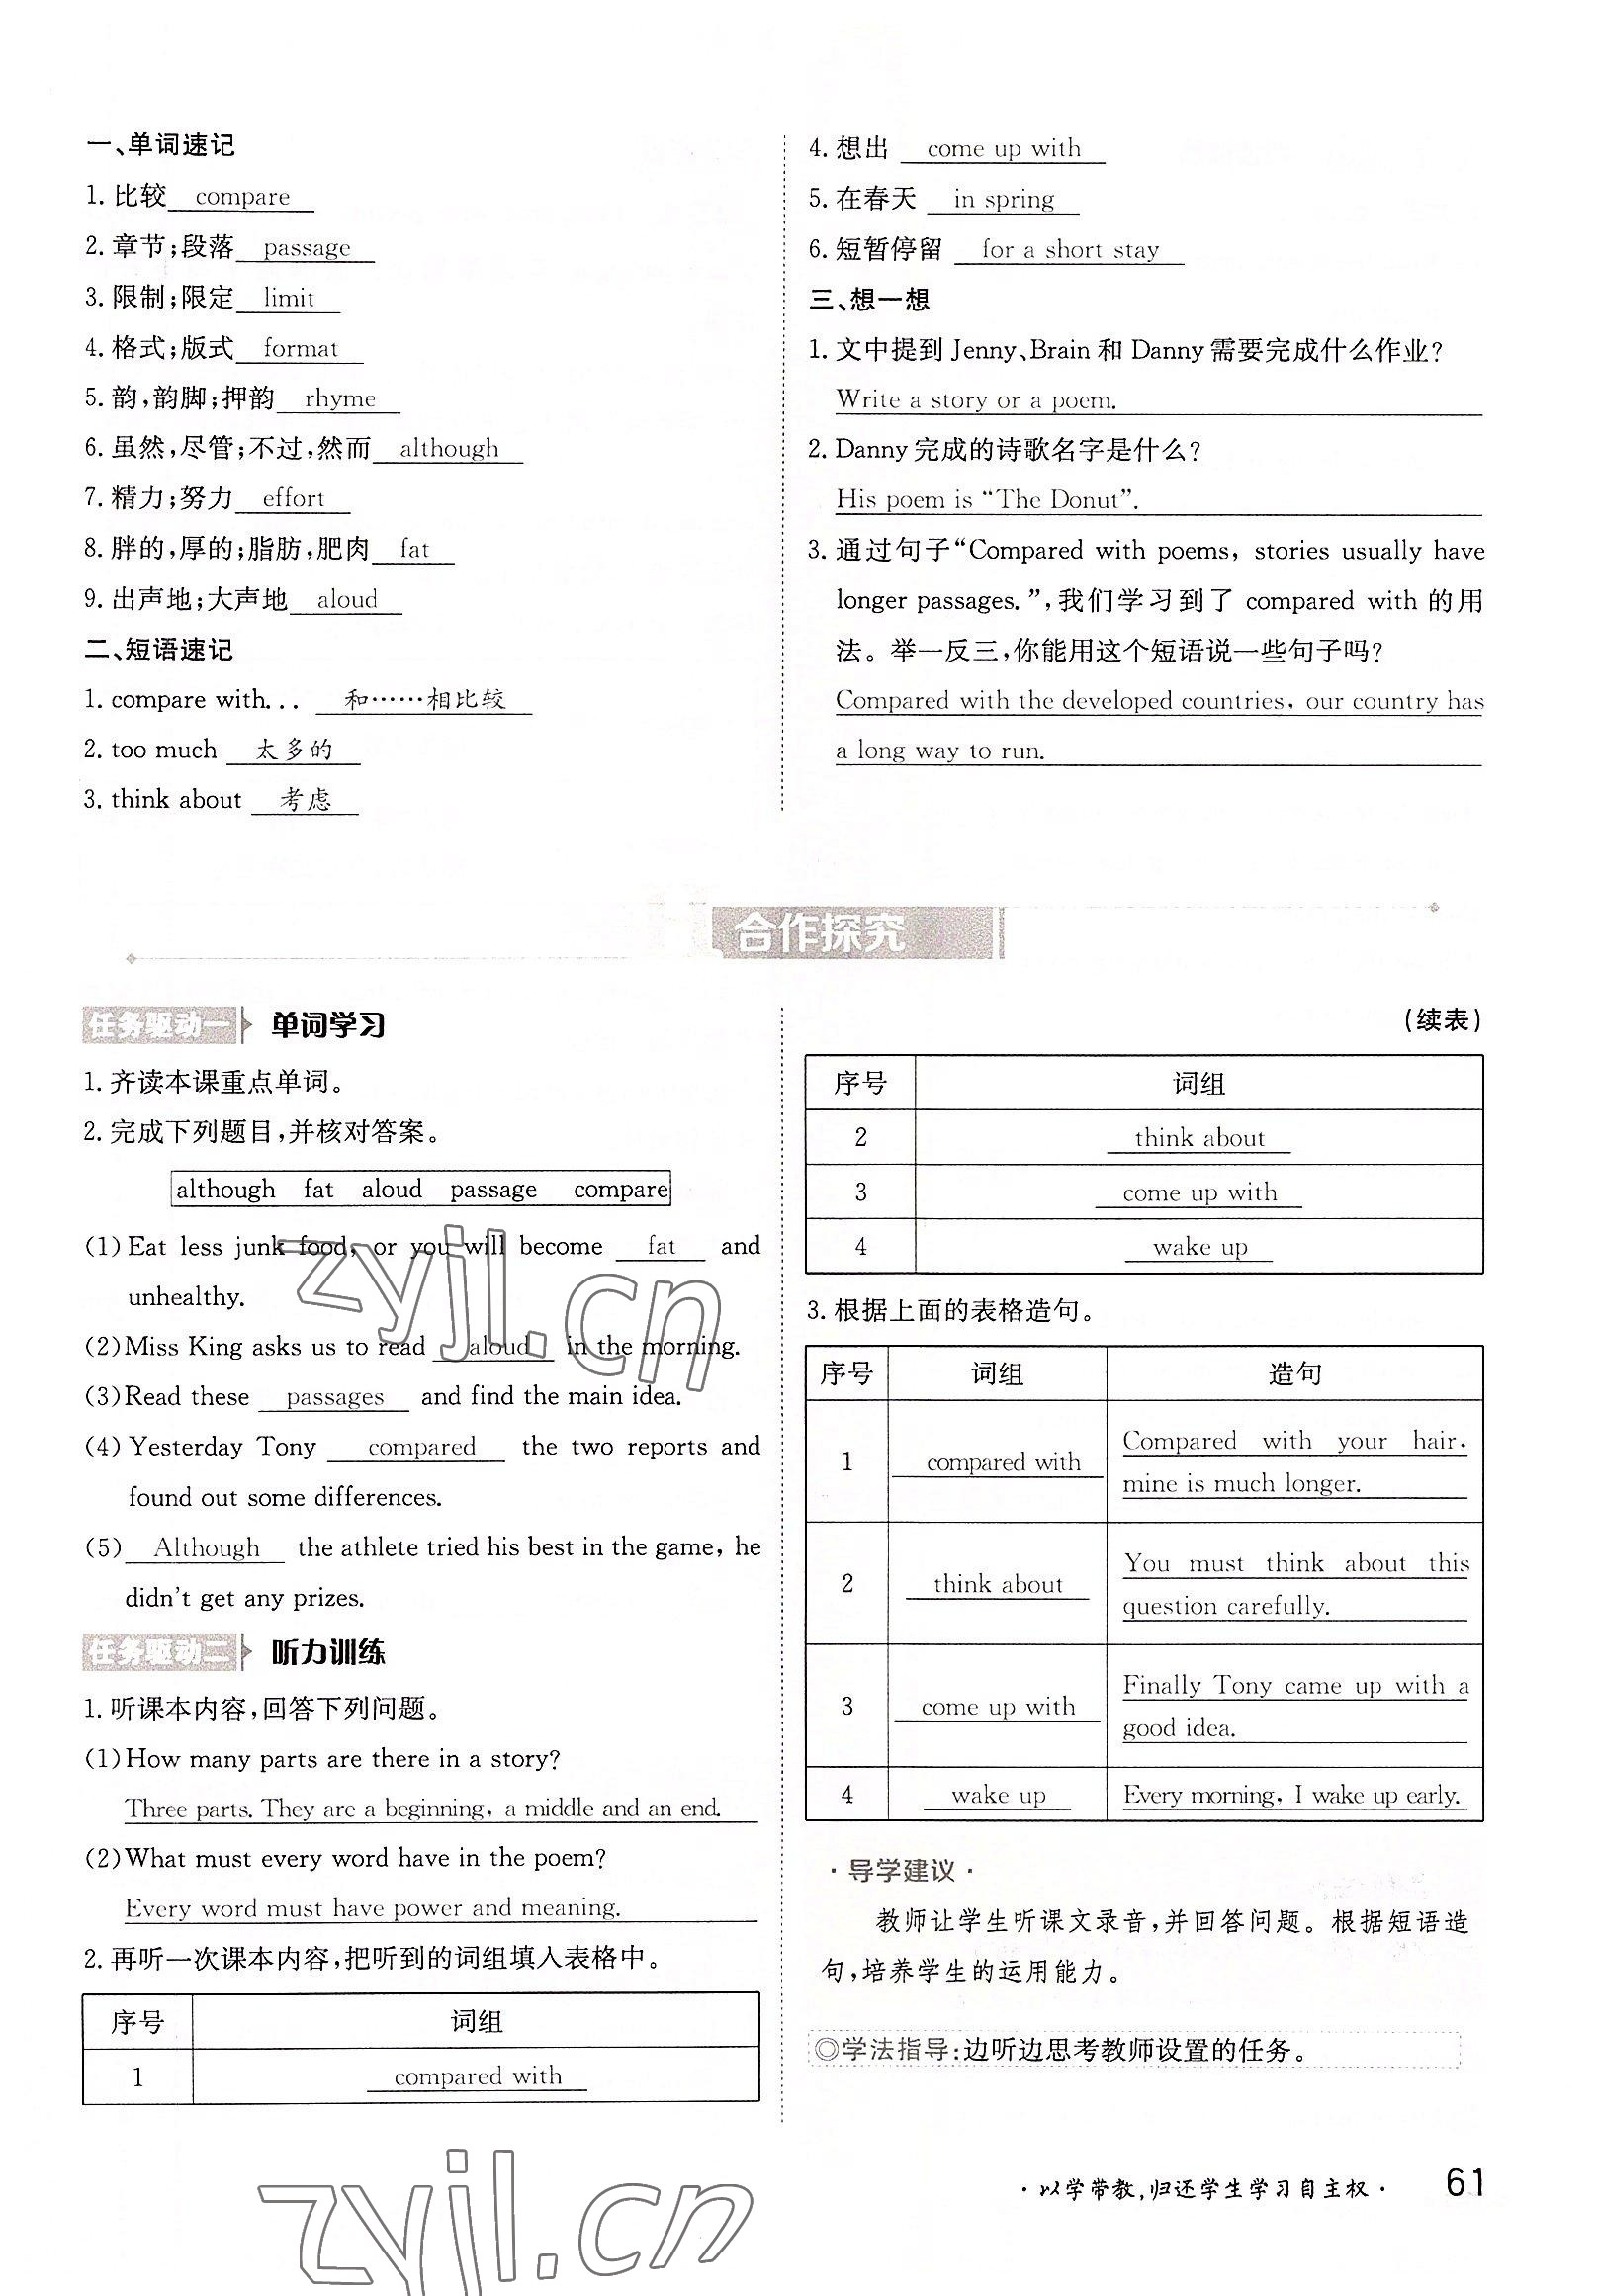 一、单词速记
1. 比较 compare
2. 章节;段落 passage
3. 限制;限定 limit
4. 格式;版式 format
5. 韵,韵脚;押韵 rhyme
6. 虽然,尽管;不过,然而 although
7. 精力;努力 effort
8. 胖的,厚的;脂肪,肥肉 fat
9. 出声地;大声地 aloud
二、短语速记
1. compare with... 和……相比较
2. too much 太多的
3. think about 考虑
4. 想出 come up with
5. 在春天 in spring
6. 短暂停留 for a short stay
三、想一想
1. 文中提到 Jenny、Brain 和 Danny 需要完成什么作业?
Write a story or a poem.
2. Danny 完成的诗歌名字是什么?
His poem is “The Donut”.
3. 通过句子“Compared with poems, stories usually have
longer passages.”,我们学习到了 compared with 的用
法。举一反三,你能用这个短语说一些句子吗?
Compared with the developed countries, our country has
a long way to run.
合作探究
任务驱动一 单词学习
1. 齐读本课重点单词。
2. 完成下列题目,并核对答案。
although fat aloud passage compare
(1) Eat less junk food, or you will become fat and
unhealthy.
(2) Miss King asks us to read aloud in the morning.
(3) Read these passages and find the main idea.
(4) Yesterday Tony compared the two reports and
found out some differences.
(5) Although the athlete tried his best in the game, he
didn't get any prizes.
任务驱动二 听力训练
1. 听课本内容,回答下列问题。
(1) How many parts are there in a story?
Three parts. They are a beginning, a middle and an end.
(2) What must every word have in the poem?
Every word must have power and meaning.
2. 再听一次课本内容,把听到的词组填入表格中。
序号 词组
1 compared with
(续表)
序号 词组
2 think about
3 come up with
4 wake up
3. 根据上面的表格造句。
序号 词组 造句
1 compared with Compared with your hair,
mine is much longer.
2 think about You must think about this
question carefully.
3 come up with Finally Tony came up with a
good idea.
4 wake up Every morning, I wake up early.
·导学建议·
教师让学生听课文录音,并回答问题。根据短语造
句,培养学生的运用能力。
◎学法指导:边听边思考教师设置的任务。
·以学带教,归还学生学习自主权· 61
zyjl.cn
zyjl.cn